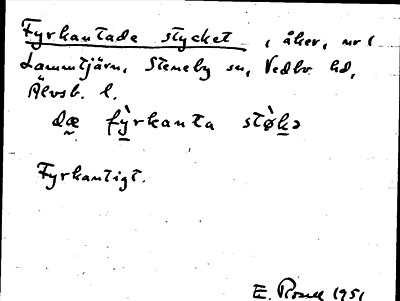 Fyrkantade stycket, åker, nr 1
Lammtjärn, Steneby sn, Vedbo hd,
Älvsb. l.
dæ fỳrkanta stø̀kə
Fyrkantigt.
E. Rosell 1951